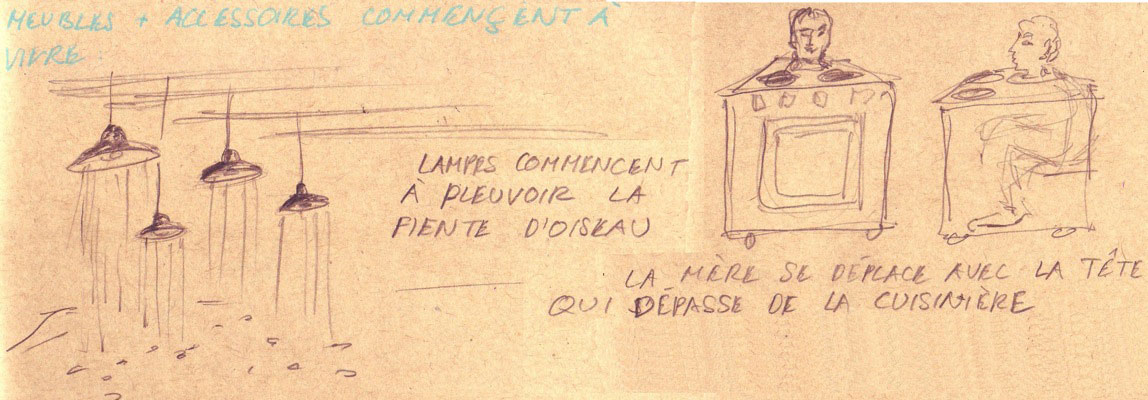 MEUBLES + ACCESSOIRES COMMENÇENT À
VIVRE :
LAMPES COMMENCENT
À PLEUVOIR LA
FIENTE D'OISEAU
LA MÈRE SE DÉPLACE AVEC LA TÊTE
QUI DÉPASSE DE LA CUISINIÈRE